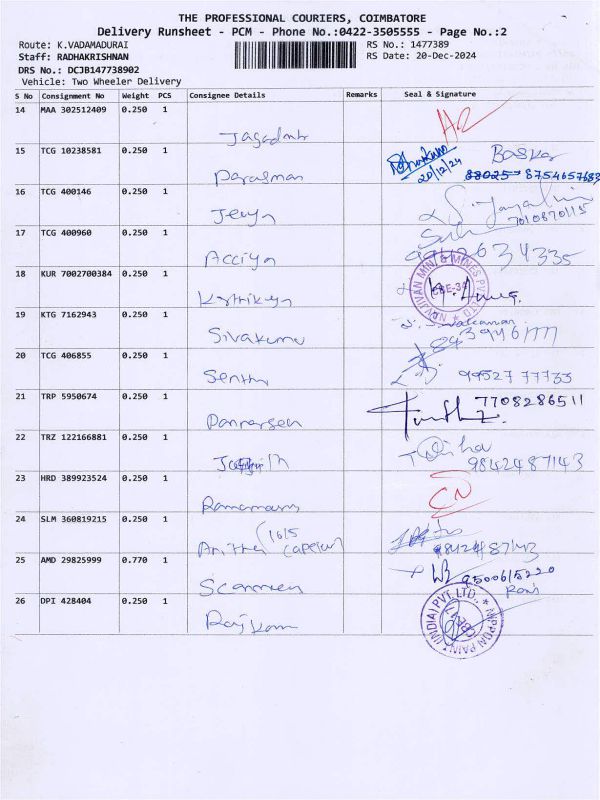 THE PROFESSIONAL COURIERS, COIMBATORE
Delivery Runsheet - PCM - Phone No.:0422-3505555 - Page No.:2
Route: K.VADAMADURAI RS No.: 1477389
Staff: RADHAKRISHNAN RS Date: 20-Dec-2024
DRS No.: DCJB147738902
Vehicle: Two Wheeler Delivery
S No Consignment No Weight PCS Consignee Details Remarks Seal & Signature
14 MAA 302512409 0.250 1
15 TCG 10238581 0.250 1 Baskar
20/12/24 8754657683
16 TCG 400146 0.250 1
Jeeya 7010870115
17 TCG 400960 0.250 1
Acciya
18 KUR 7002700384 0.250 1
NAVJIVAN MINT & MINES PVT LTD
CBE-34
Karthikeyan
19 KTG 7162943 0.250 1
Sivakumar
20 TCG 406855 0.250 1
Senthil 99527 77733
21 TRP 5950674 0.250 1 7708286511
22 TRZ 122166881 0.250 1
9842487143
23 HRD 389923524 0.250 1
24 SLM 360819215 0.250 1
Anitha 9842487143
25 AMD 29825999 0.770 1 9500615220
Ravi
26 DPI 428404 0.250 1
NIPPON PAINT (INDIA) PVT. LTD.
Rajkumar